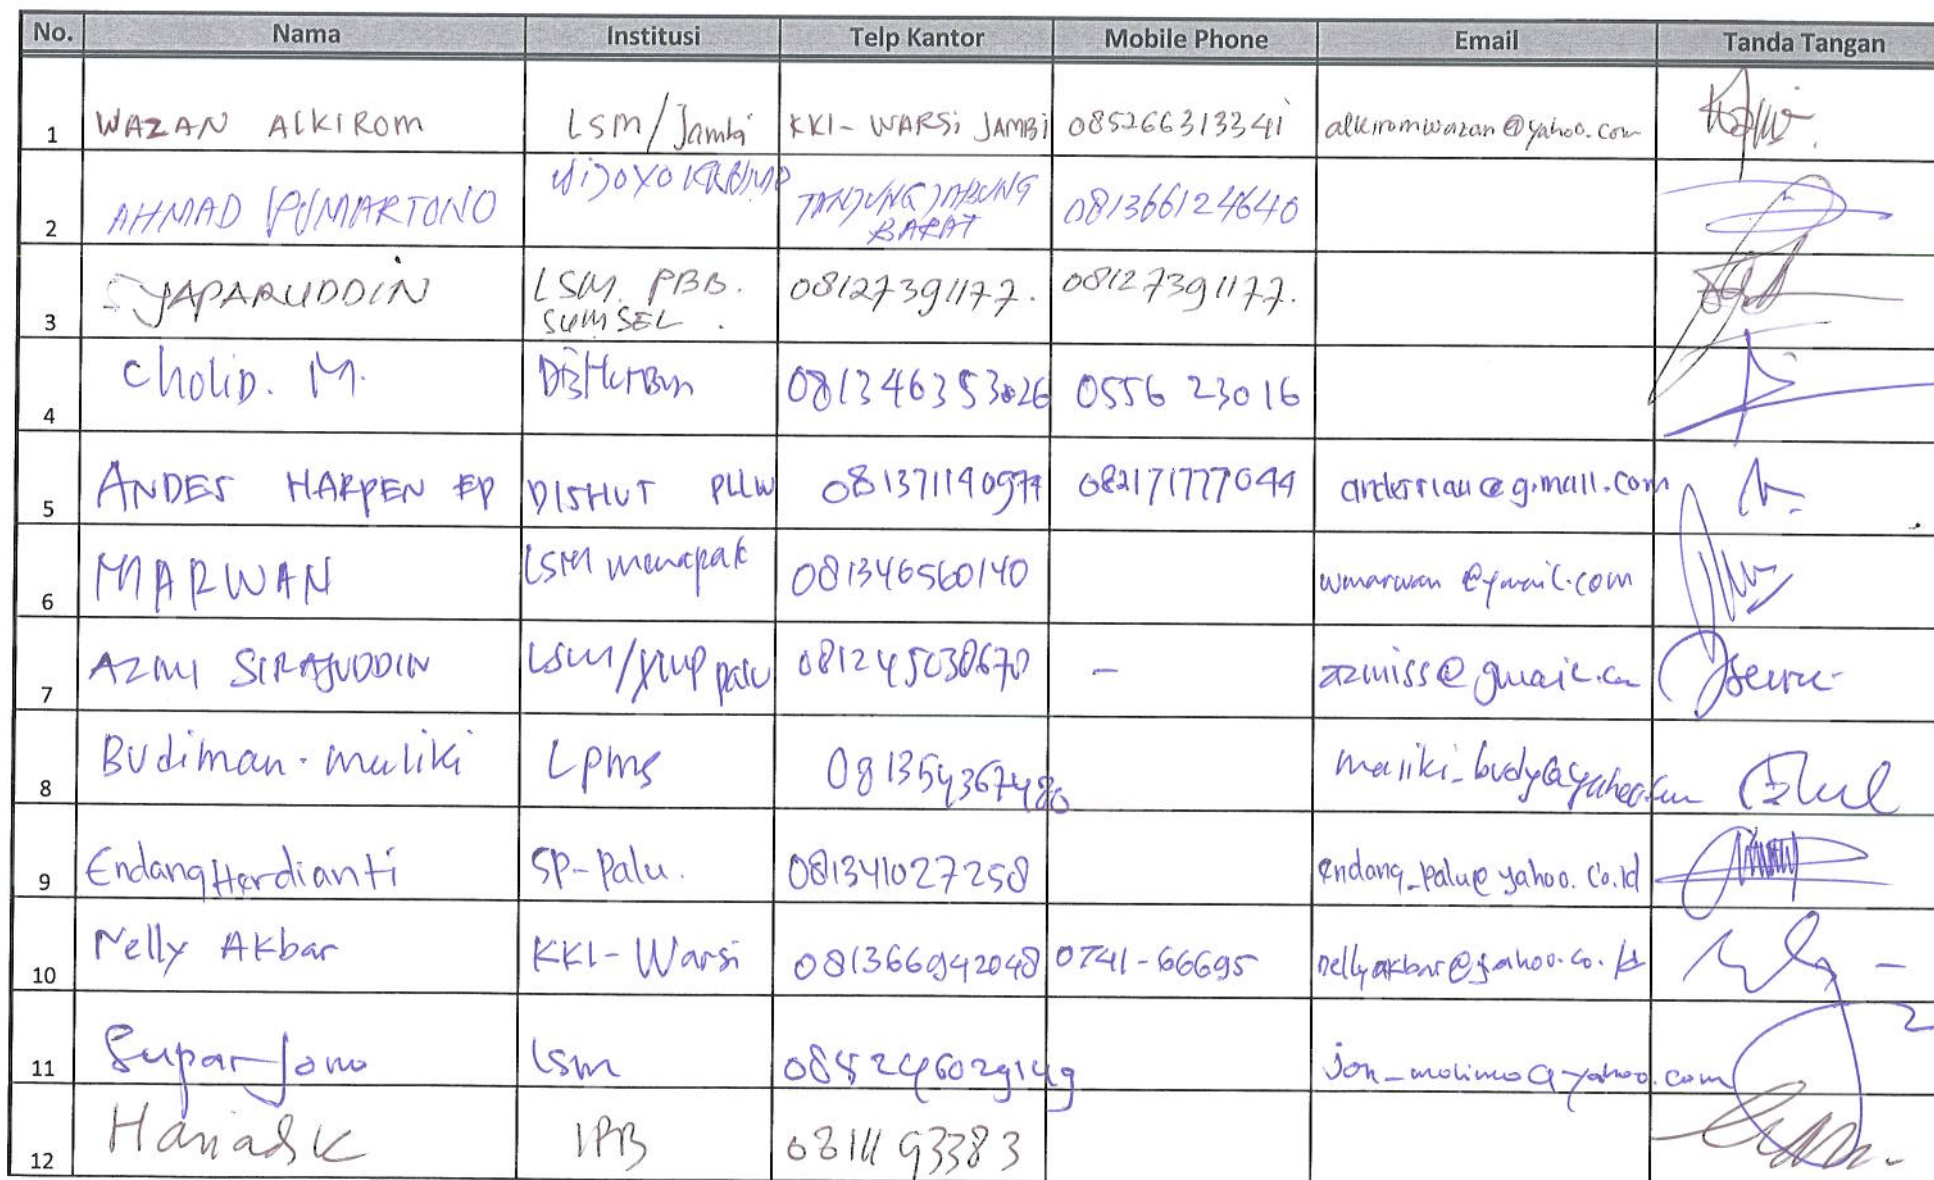 No. Nama Institusi Telp Kantor Mobile Phone Email Tanda Tangan
1 WAZAN ALKIROM LSM/Jambi KKI- WARSI JAMBI 085266313341 alkiromwazan@yahoo.com
2 AHMAD TANJUNG JABUNG 081366124640
BARAT
3 SYAPARUDDIN LSM. PBB. 08127391177. 08127391177.
SUMSEL.
4 Cholid. M. 081346353026 0556 23016
5 ANDES HARPEN EP DISHUT PLLW 082171777044
6 MARWAN LSM menapak 081346560140 wmarwan@ymail.com
7 AZMI SIRAJUDDIN LSM/YMP palu 081245038670 - azmiss@gmail.com
8 Budiman. maliki LPMS 081354367480 maliki_budy@yahoo.com
9 Endang Herdianti SP-Palu. 081341027258 endang_palu@yahoo.co.id
10 Nelly Akbar KKI-Warsi 081366942048 0741-66695 nellyakbar@yahoo.co.id
11 Suparjono LSM 085246029149 jon_molimo@yahoo.com
12 IPB 0811193383